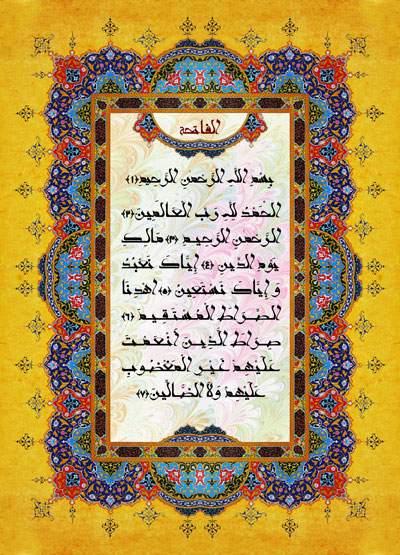 الفاتحة
بِسْمِ اللهِ الرَّحْمنِ الرَّحِيمِ ﴿١﴾
الْحَمْدُ لِلّهِ رَبِّ الْعَالَمِينَ ﴿٢﴾
الرَّحْمنِ الرَّحِيمِ ﴿٣﴾ مَالِكِ
يَوْمِ الدِّينِ ﴿٤﴾ إِيَّاكَ نَعْبُدُ
وَ إِيَّاكَ نَسْتَعِينُ ﴿٥﴾ اهْدِنَا
الصِّرَاطَ الْمُسْتَقِيمَ ﴿٦﴾
صِرَاطَ الَّذِينَ أَنْعَمْتَ
عَلَيْهِمْ غَيْرِ الْمَغْضُوبِ
عَلَيْهِمْ وَلاَ الضَّالِّينَ ﴿٧﴾